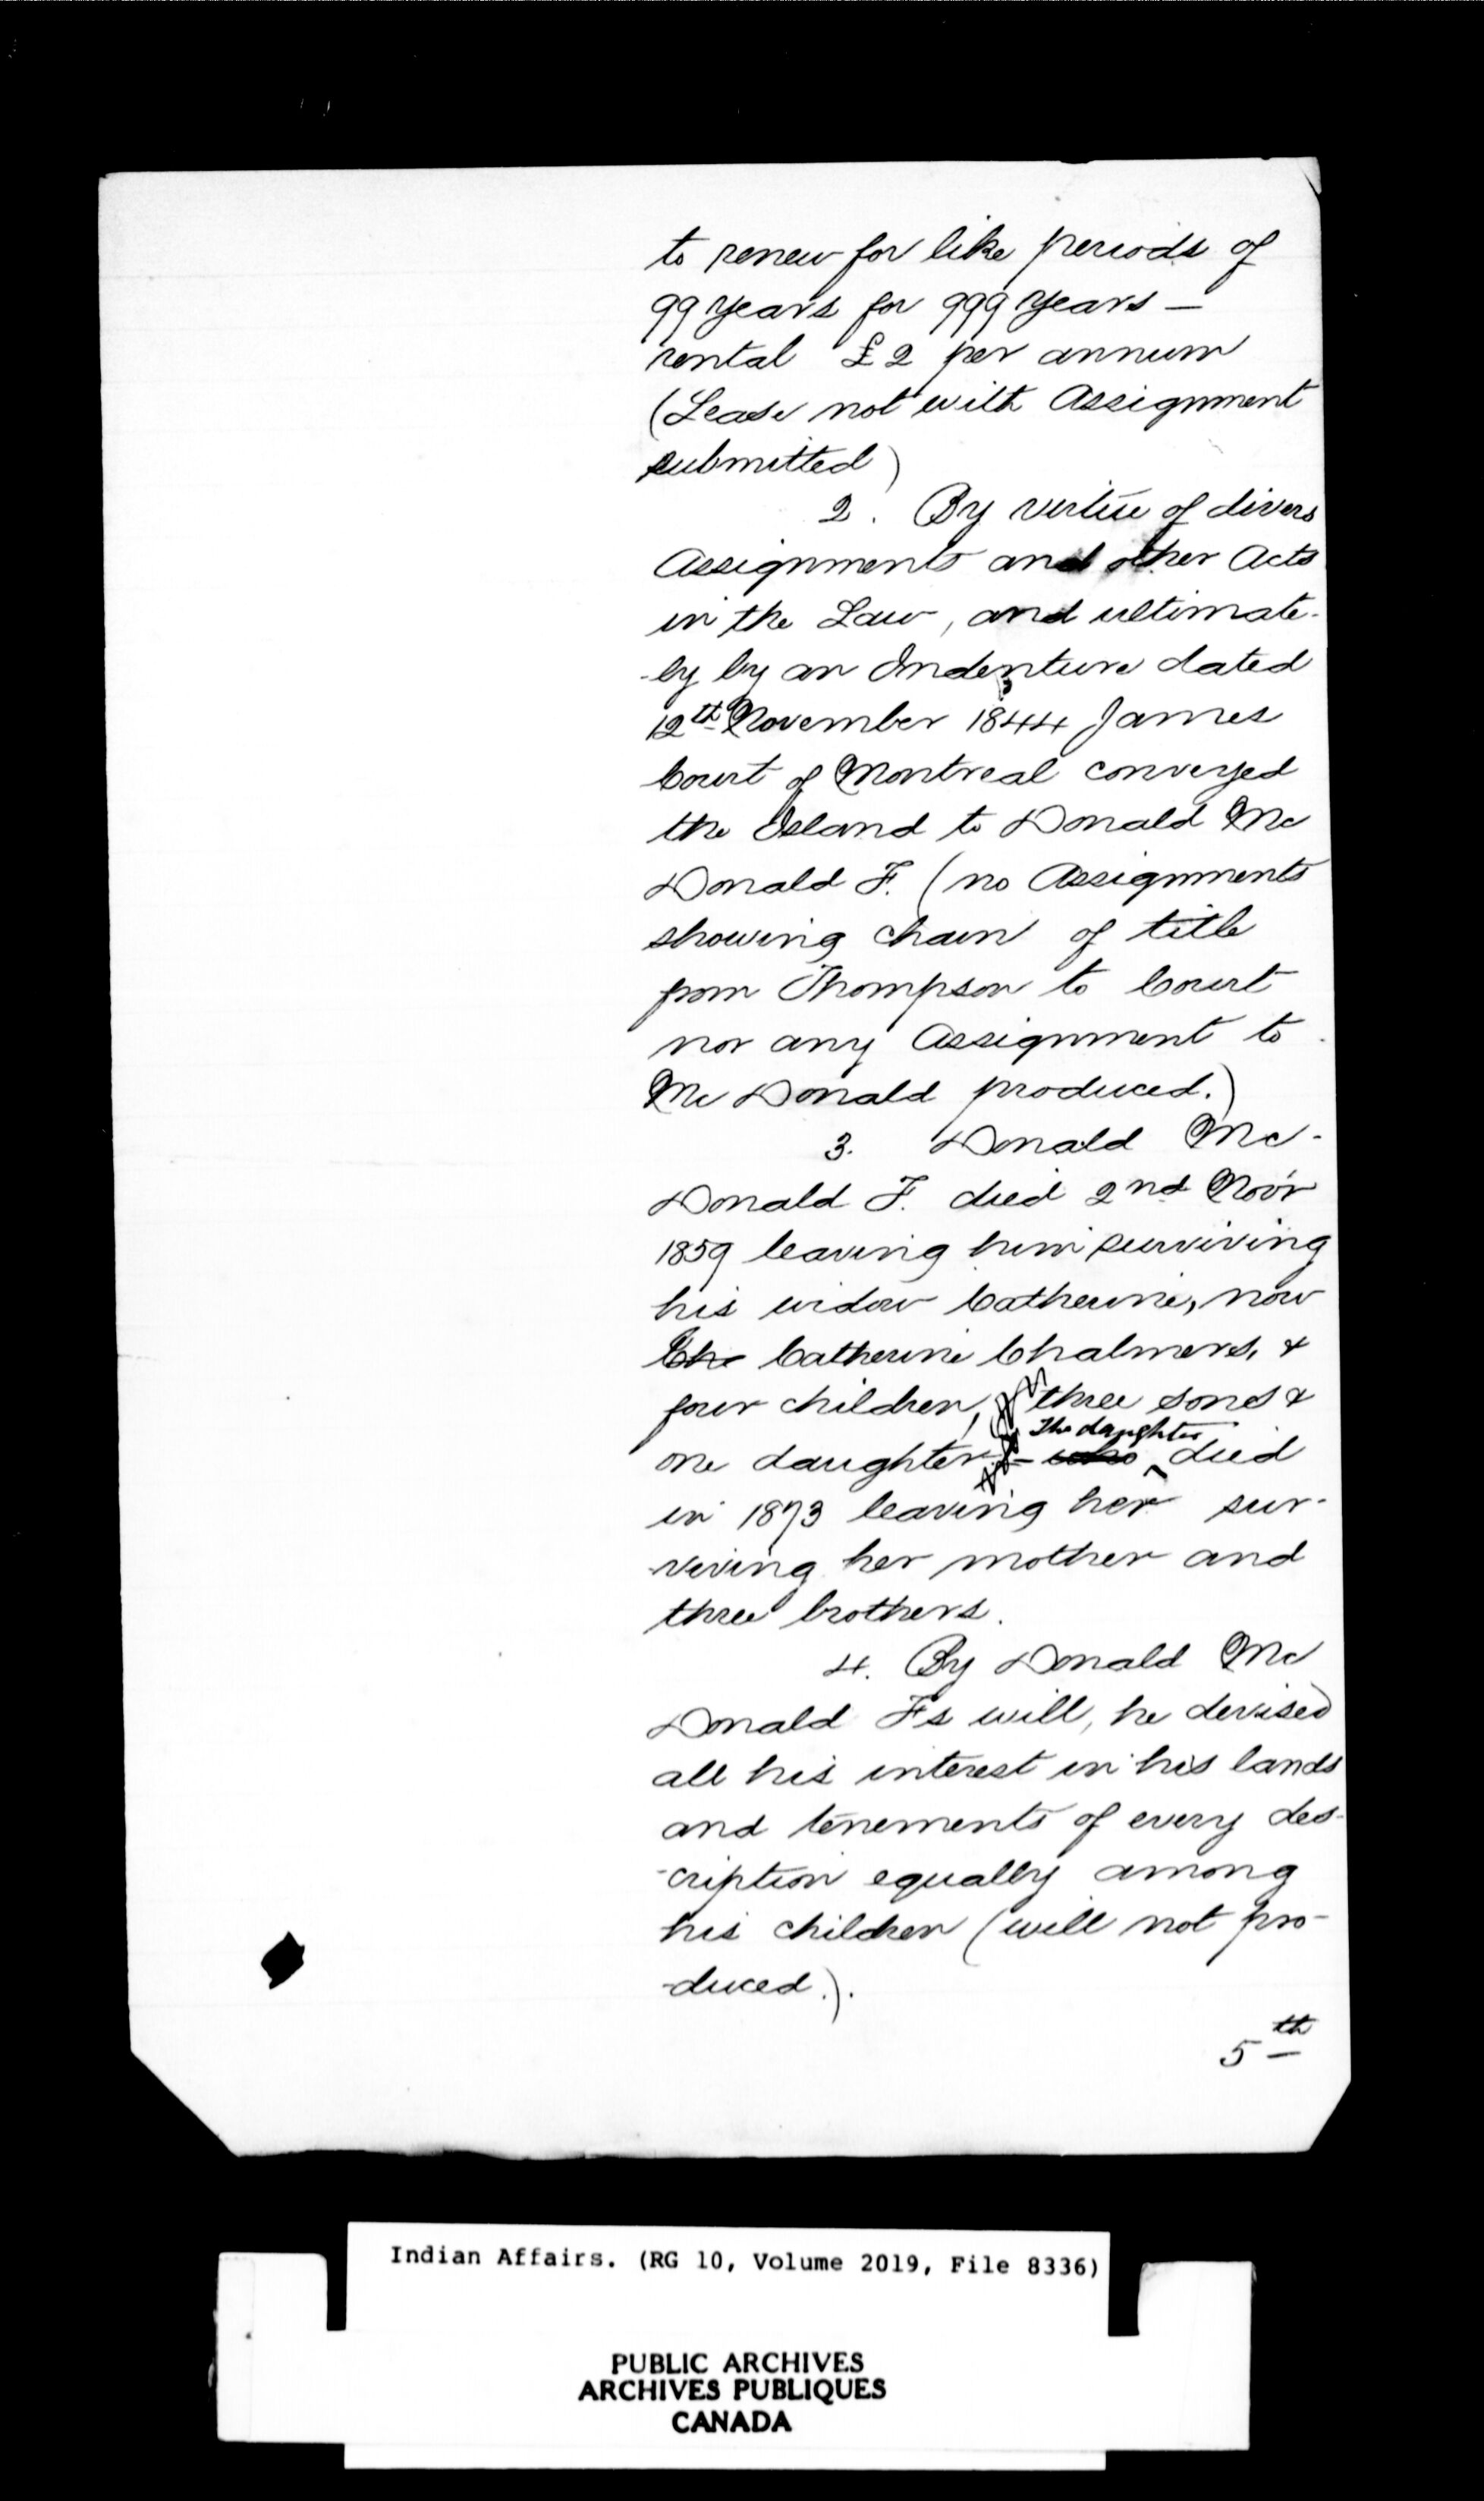 to renew for like periods of
99 years for 999 years —
rental £2 per annum
(Lease not with Assignment
submitted)
2. By virtue of divers
Assignments and other Acts
in the Law, and ultimate-
-ly by an Indenture dated
12th November 1844 James
Court of Montreal conveyed
the Island to Donald Mc
Donald F. (no Assignments
showing chain of title
from Thompson to Court
nor any Assignment to
McDonald produced.)
3. Donald Mc-
Donald F. died 2nd Nov'r
1859 leaving him surviving
his widow Catherine, now
Cha Catherine Chalmers, &
four children, three sons &
The daughter
one daughter – who died
in 1873 leaving her sur-
-viving her mother and
three brothers.
4. By Donald Mc
Donald F's will, he devised
all his interest in his lands
and tenements of every des-
-cription equally among
his children (will not pro-
-duced.).
5th
Indian Affairs. (RG 10, Volume 2019, File 8336)
PUBLIC ARCHIVES
ARCHIVES PUBLIQUES
CANADA